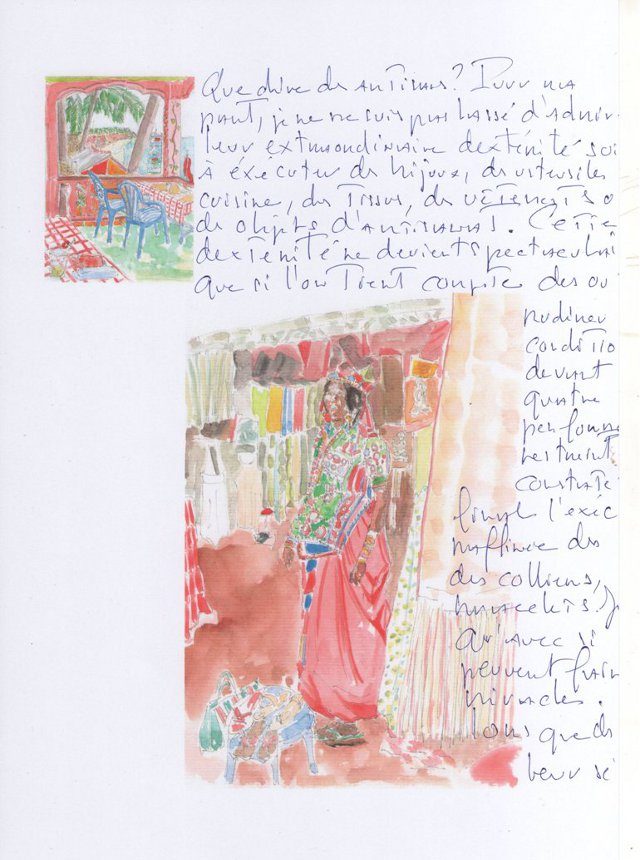 Que dire des artisans? Pour ma
part, je ne me suis pas lassé d'admir
leur extraordinaire dextérité soi
à exécuter des bijoux, des ustensiles
cuisine, des tissus, des vêtements o
des objets d'artisanat. Cette
dextérité ne devient spectaculai
que si l'on tient compte des ou
rudimen
conditio
devant
quatre
personne
restment
constate
l'exéc
raffinée des
des colliers,
bracelets.
qu'avec si
peuvent
miracles.
lors que
leur sé